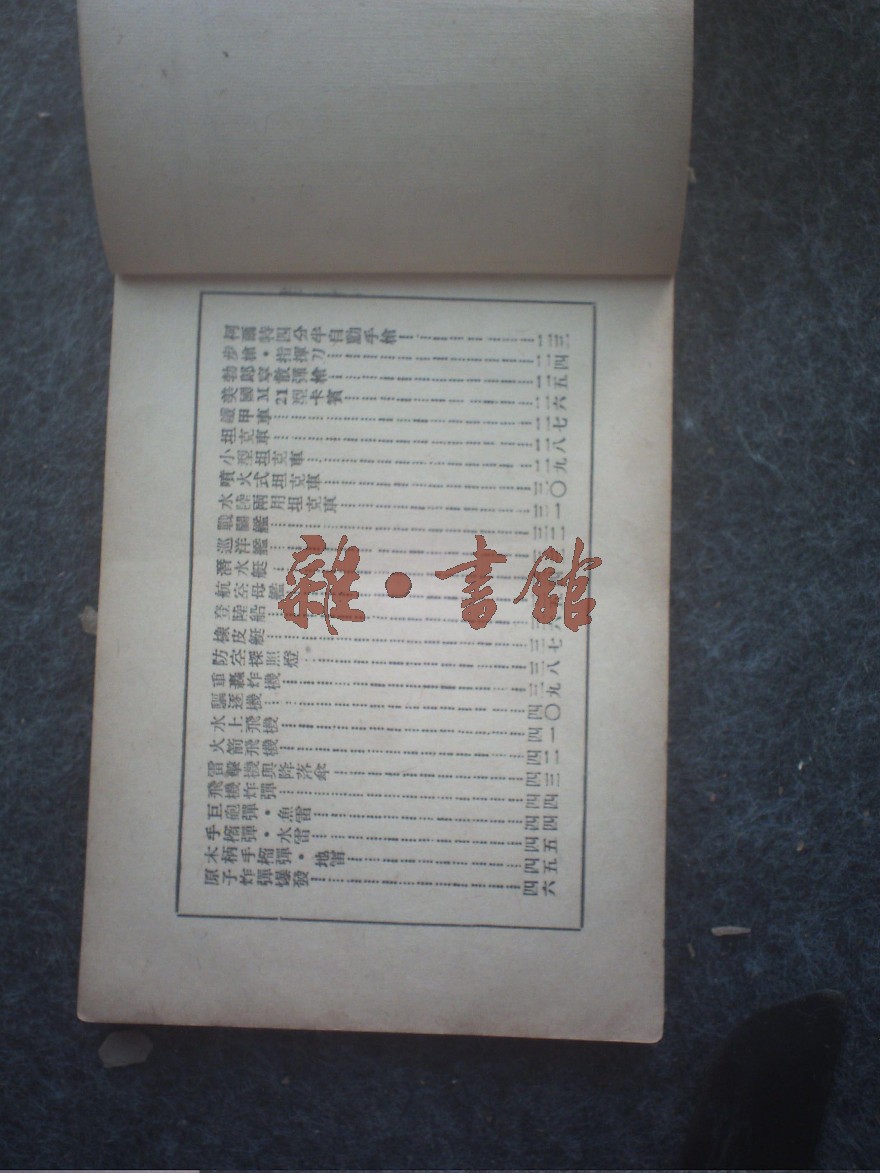 柯爾特四分半自動手槍⋯⋯二三
步槍・指揮刀⋯⋯二四
勃郎寧散彈槍⋯⋯二五
美國M21型卡賓⋯⋯二六
鐵甲車⋯⋯二七
坦克車⋯⋯二八
小型坦克車⋯⋯二九
噴火式坦克車⋯⋯三〇
水陸兩用坦克車⋯⋯三一
戰鬥艦⋯⋯三二
巡洋艦⋯⋯
潛水艇⋯⋯
航空母艦⋯⋯
登陸船⋯⋯三六
橡皮艇⋯⋯三七
防空探照燈⋯⋯三八
重轟炸機⋯⋯三九
驅逐機⋯⋯四〇
水上飛機⋯⋯四一
火箭飛機⋯⋯四二
雷擊機與降落傘⋯⋯四三
飛機炸彈⋯⋯四四
巨砲彈・魚雷⋯⋯四四
手榴彈・水雷⋯⋯四五
木柄手榴彈・地雷⋯⋯四五
原子炸彈爆發⋯⋯四六
雜・書館